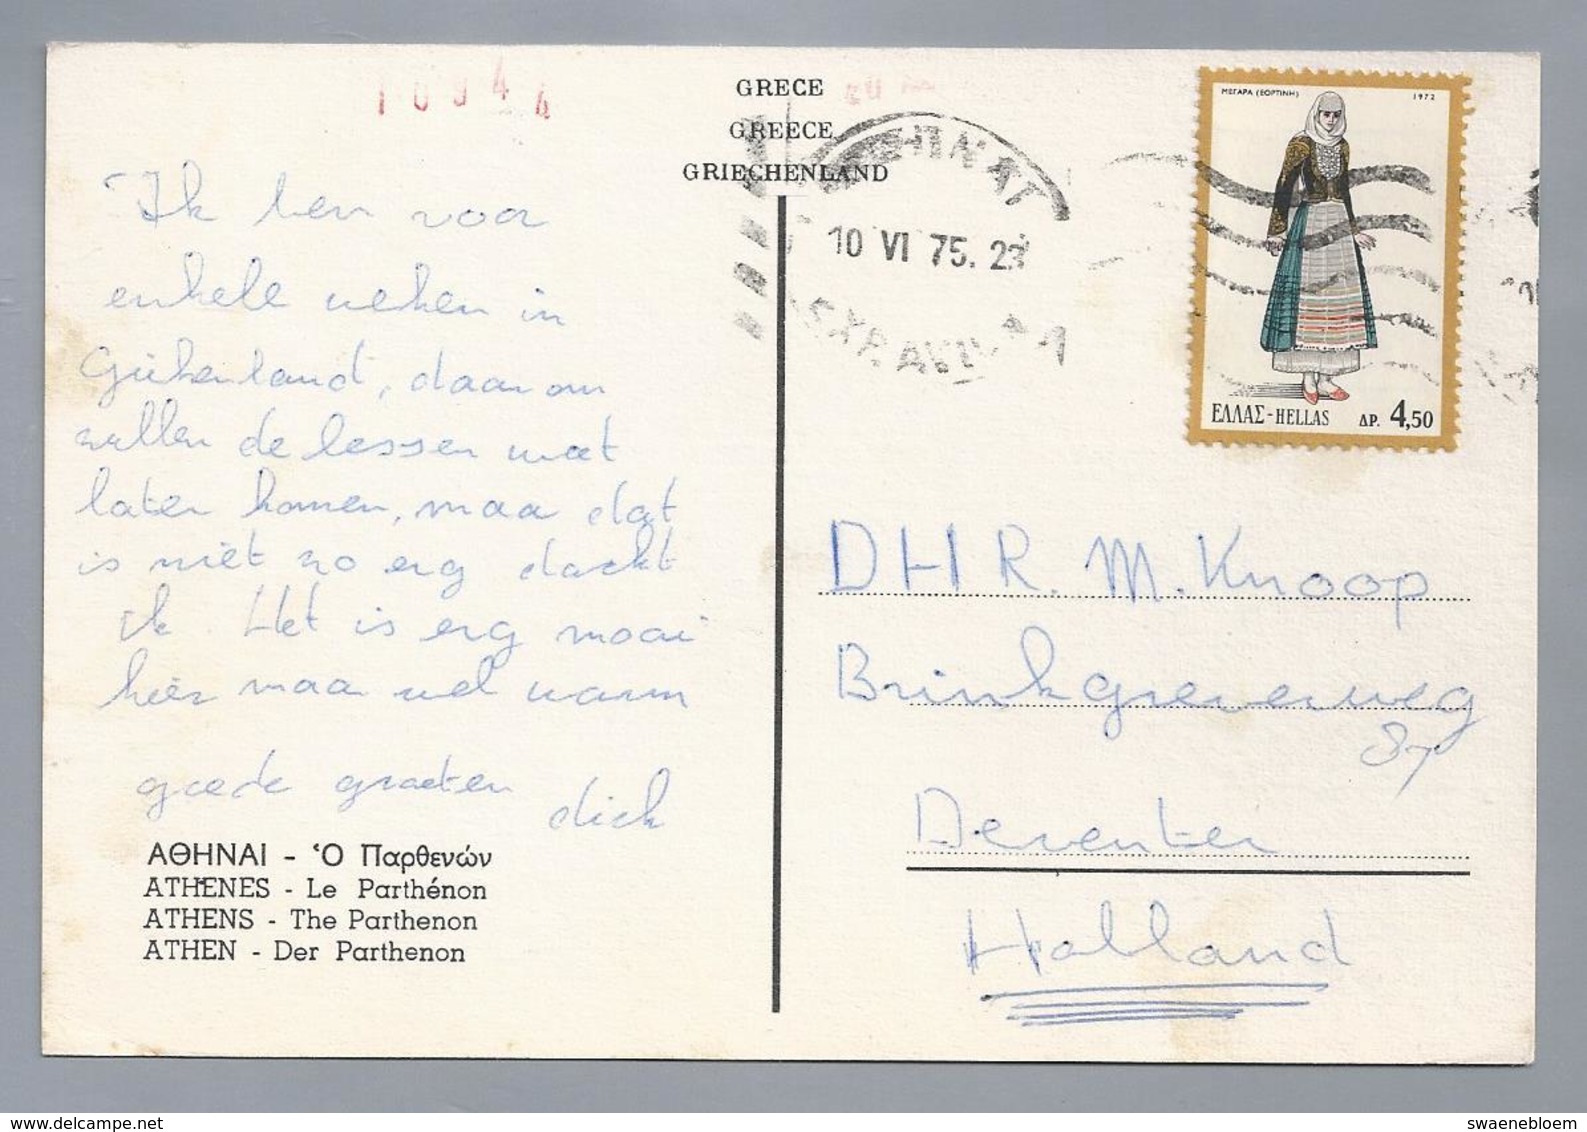 10944
GRECE
GREECE
GRIECHENLAND
ΜΕΓΑΡΑ (ΕΟΡΤΙΝΗ) 1972
10 VI 75. 23
ΕΛΛΑΣ-HELLAS ΔΡ. 4,50
Ik ben voor
enkele weken in
Griekenland, daarom
zullen de lessen wat
later komen, maar dat
is niet zo erg dacht
ik. Het is erg mooi
hier maar wel warm
goede groeten
dick
ΑΘΗΝΑΙ - Ὁ Παρθενών
ATHENES - Le Parthénon
ATHENS - The Parthenon
ATHEN - Der Parthenon
DHR. M. Knoop
Brinkgreverweg
87
Deventer
Holland
www.delcampe.net
swaenebloem